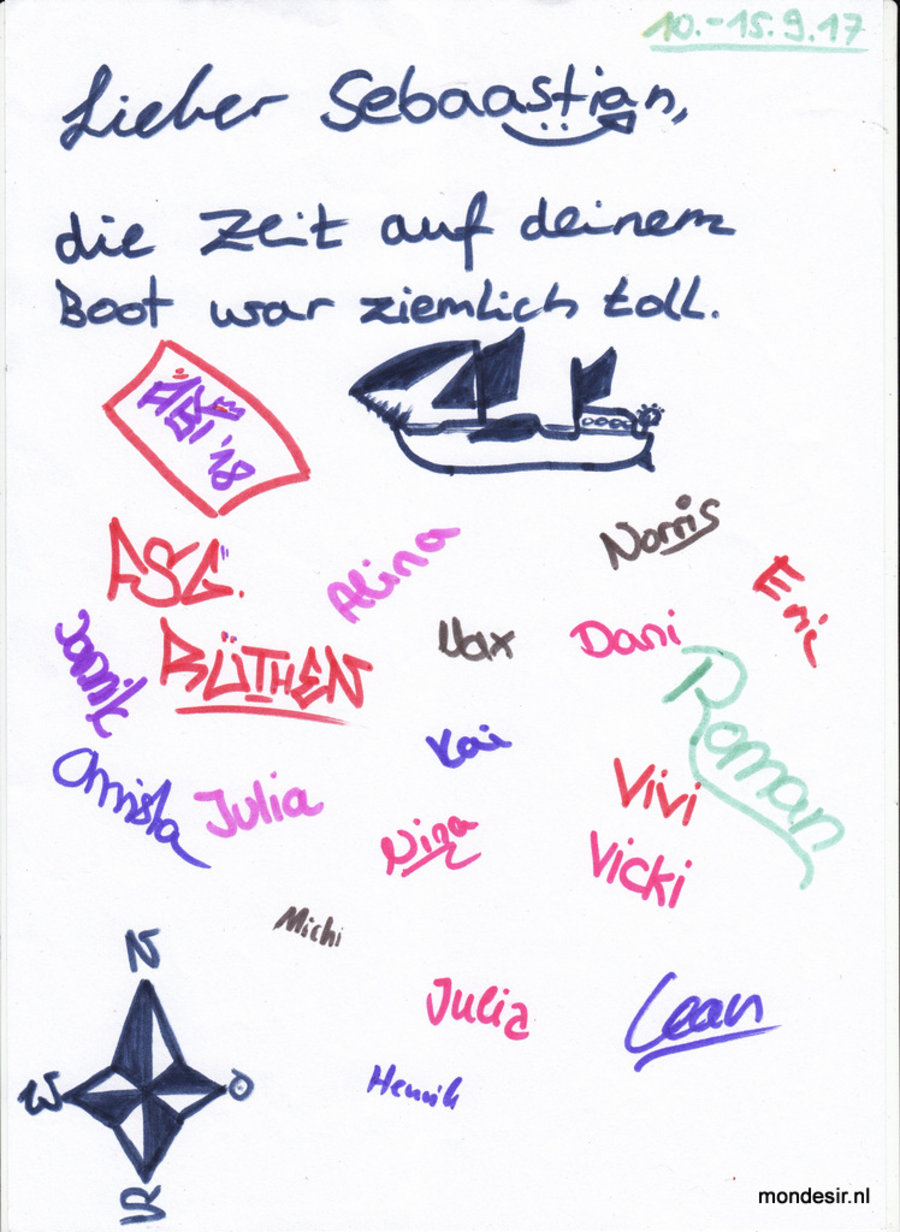 10.-15.9.17
Lieber Sebaastian,
die Zeit auf deinem
Boot war ziemlich toll.
ABI '18
Norris
ASG.
Alina
Eric
Max
Dani
Jannik
RÜTHEN
Roman
Kai
Christa
Julia
Vivi
Nina
Vicki
Michi
N
Julia
Lean
W
O
Henrik
S
mondesir.nl